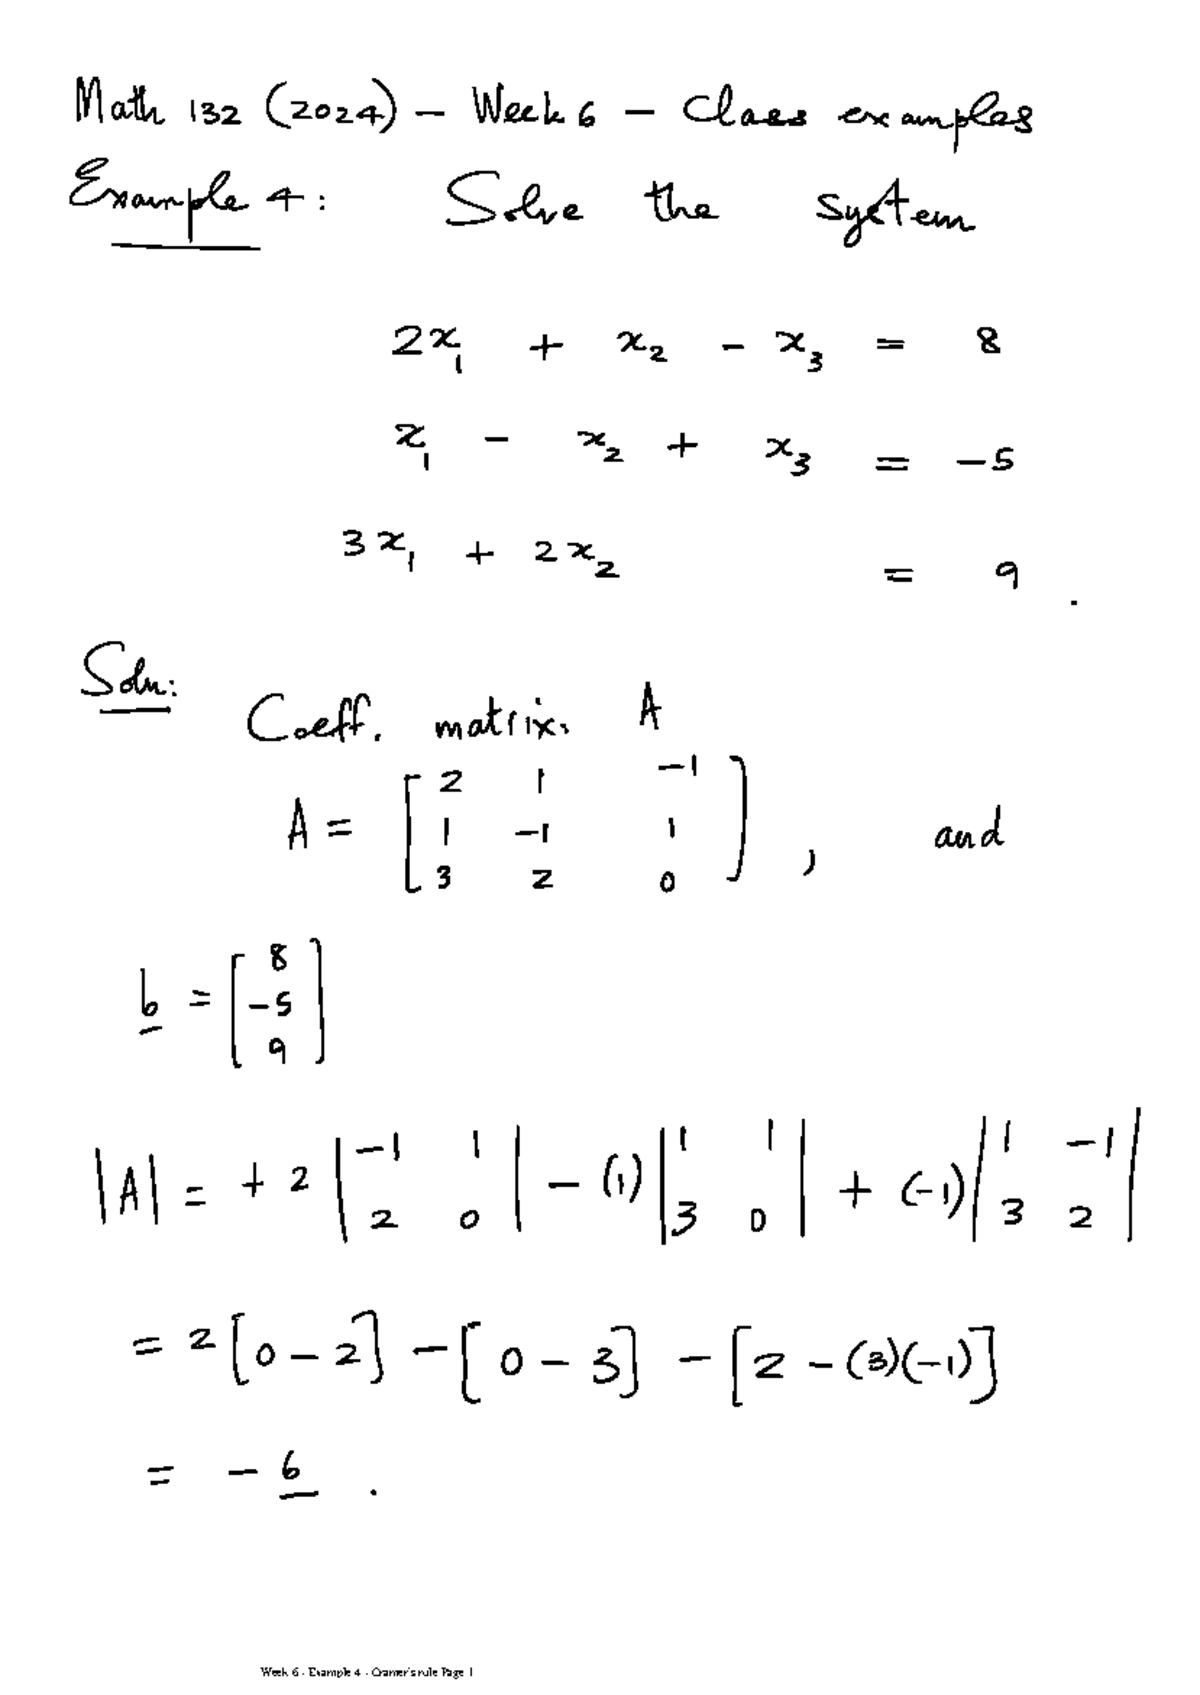 Math 132 (2024) - Week 6 - Class examples
Example 4: Solve the system
2x₁ + x₂ - x₃ = 8
x₁ - x₂ + x₃ = -5
3x₁ + 2x₂ = 9 .
Soln:
Coeff. matrix. A
A = [ 2 1 -1
1 -1 1
3 2 0 ] , and
b = [ 8
-5
9 ]
|A| = + 2 | -1 1 | - (1) | 1 1 | + (-1) | 1 -1 |
| 2 0 | | 3 0 | | 3 2 |
= 2 [0 - 2] - [0 - 3] - [2 - (3)(-1)]
= - 6 .
Week 6 - Example 4 - Cramer's rule Page 1